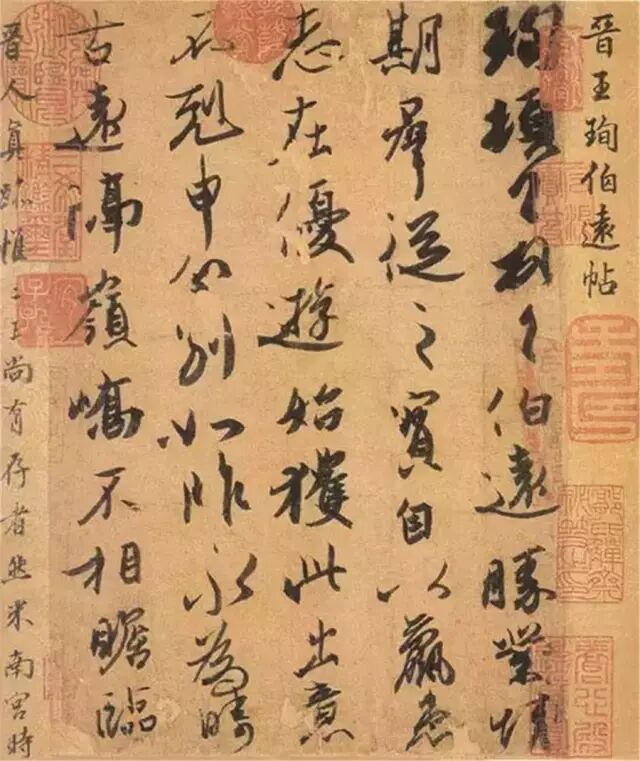 晉王珣伯遠帖
珣頓首頓首伯遠勝業情
期羣從之寳自以羸患
志在優遊始獲此出意
不剋申分別如昨永為疇
古遠隔嶺嶠不相瞻臨
晉人真跡惟二王尚有存者然米南宮時